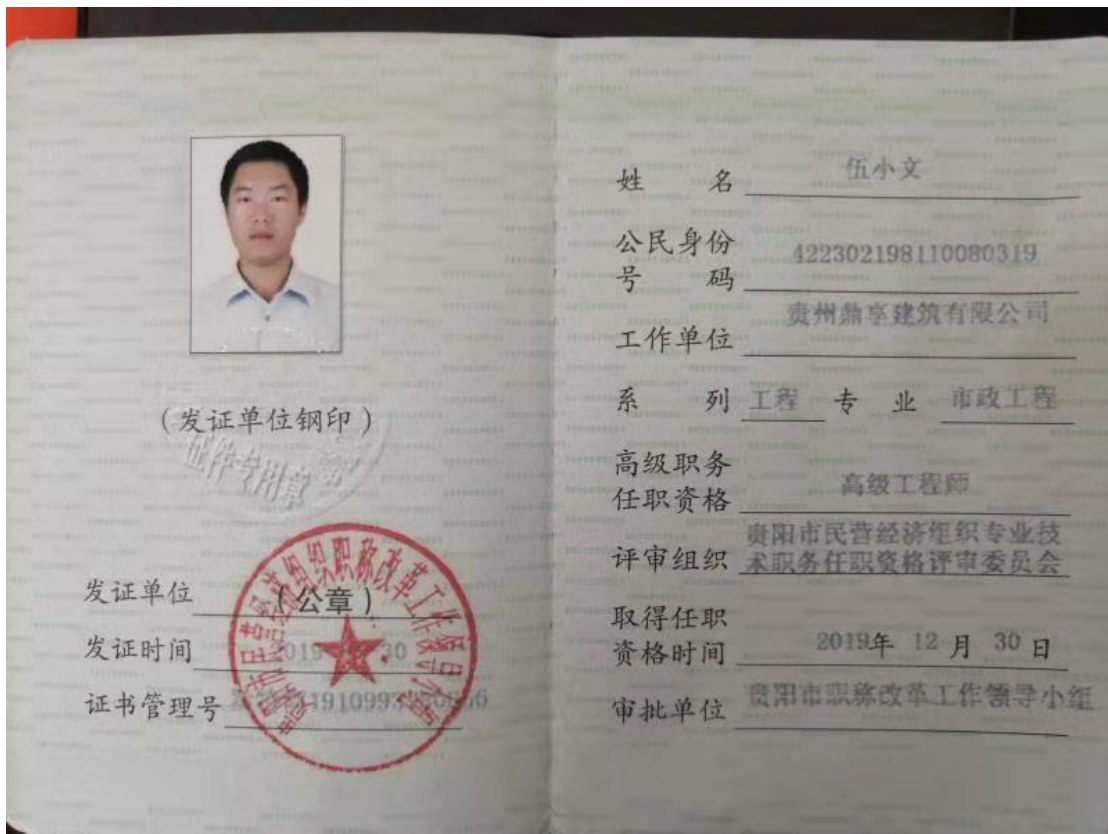 (发证单位钢印)
证件专用章
组织职称改革工作领导小组
发证单位 (公章)
发证时间 2019 30
证书管理号
姓 名 伍小文
公民身份
号 码 422302198110080319
工作单位 贵州鼎享建筑有限公司
系 列 工程 专 业 市政工程
高级职务
任职资格 高级工程师
评审组织 贵阳市民营经济组织专业技
术职务任职资格评审委员会
取得任职
资格时间 2019年 12 月 30 日
审批单位 贵阳市职称改革工作领导小组